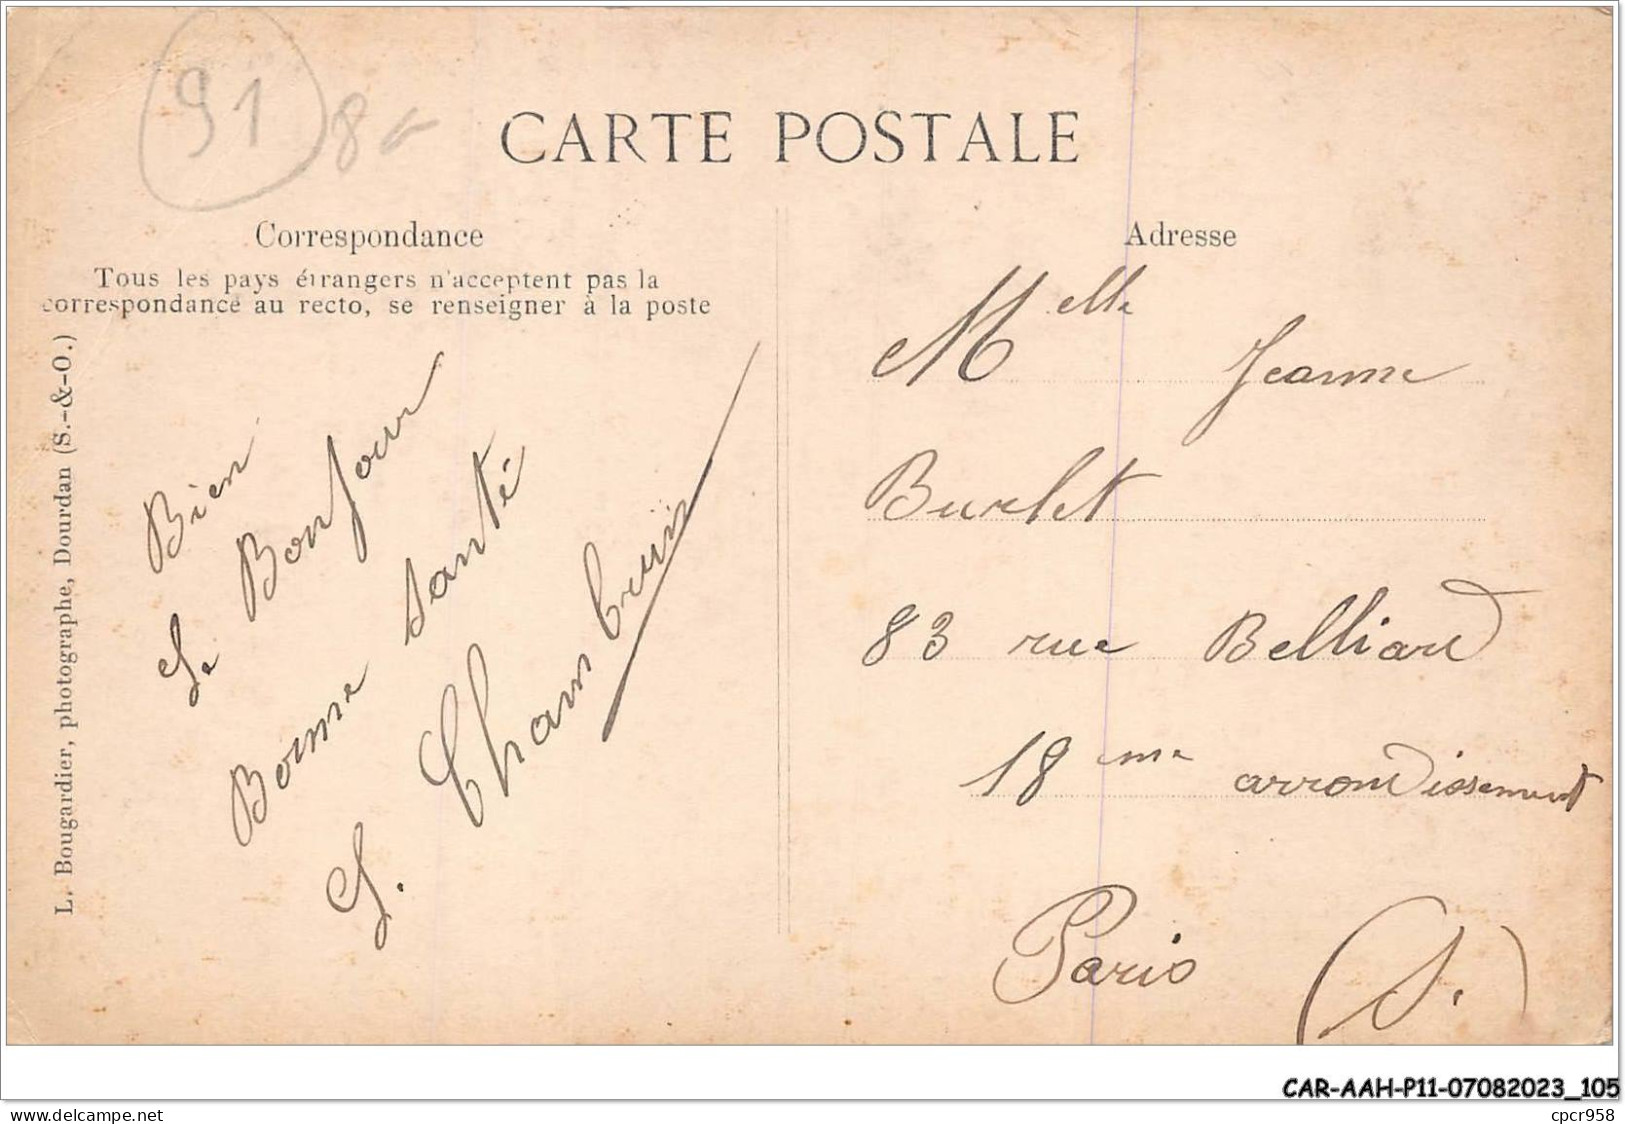 91
8
CARTE POSTALE
Correspondance
Tous les pays étrangers n'acceptent pas la
correspondance au recto, se renseigner à la poste
L. Bougardier, photographe, Dourdan (S.-&-O.)
Bien
Le Bonjour
Bonne Santé
Adresse
Melle Jeanne
Burlet
83 rue Belliard
18me arrondissement
Paris (S.)
CAR-AAH-P11-07082023_105
www.delcampe.net
cpcr958